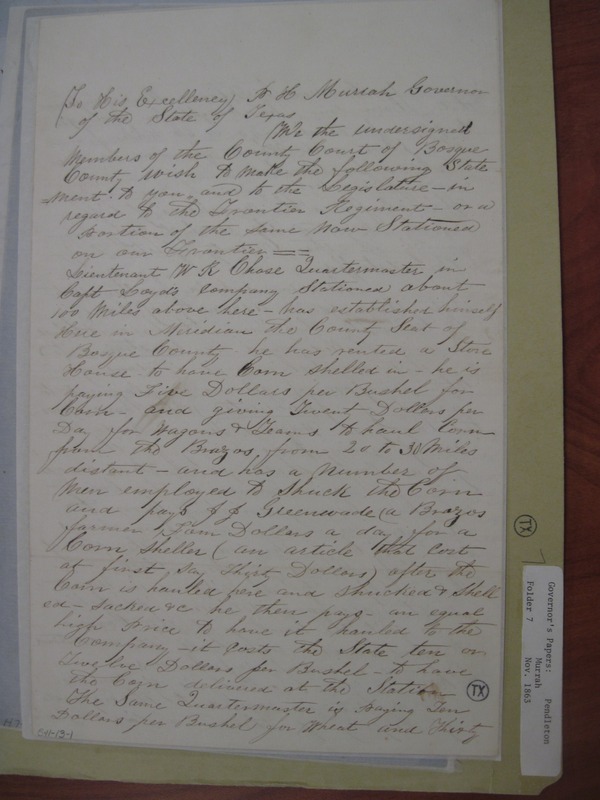 (To His Excellency) P H Murrah Governor
of the State of Texas
(We the undersigned
Members of the County Court of Bosque
County wish to make the following State
=ment to you, and to the Legislature - in
regard to the Frontier Regiment - or a
portion of the same now Stationed
on our Frontier ==
Lieutenant W R Chase Quartermaster in
Capt Loyd's Company Stationed about
100 Miles above here - has established himself
Here in Meridian the County Seat of
Bosque County he has rented a Store
House to have Corn shelled in - he is
paying Five Dollars per Bushel for
Corn - and giving Twent Dollars per
Day for Wagons & Teams to haul Corn
from the Brazos from 20 to 30 Miles
distant - and has a number of
Men employed to Shuck the Corn
and pays J J Greenwade (a Brazos
farmer Four Dollars a day for a
Corn Sheller (an article that Cost
at first, say Thirt Dollars) after the
Corn is hauled here and Shucked & Shell
ed - Sacked &c he then pays an equal
high Price to have it hauled to the
Company - it Costs the State ten or
twelve Dollars per Bushel - to have
the Corn delivered at the Station
The Same Quartermaster is paying Ten
Dollars per Bushel for Wheat and Thirty
TX
CH-13-1
TX
Governor's Papers: Pendleton
Murrah
Folder 7 Nov. 1863